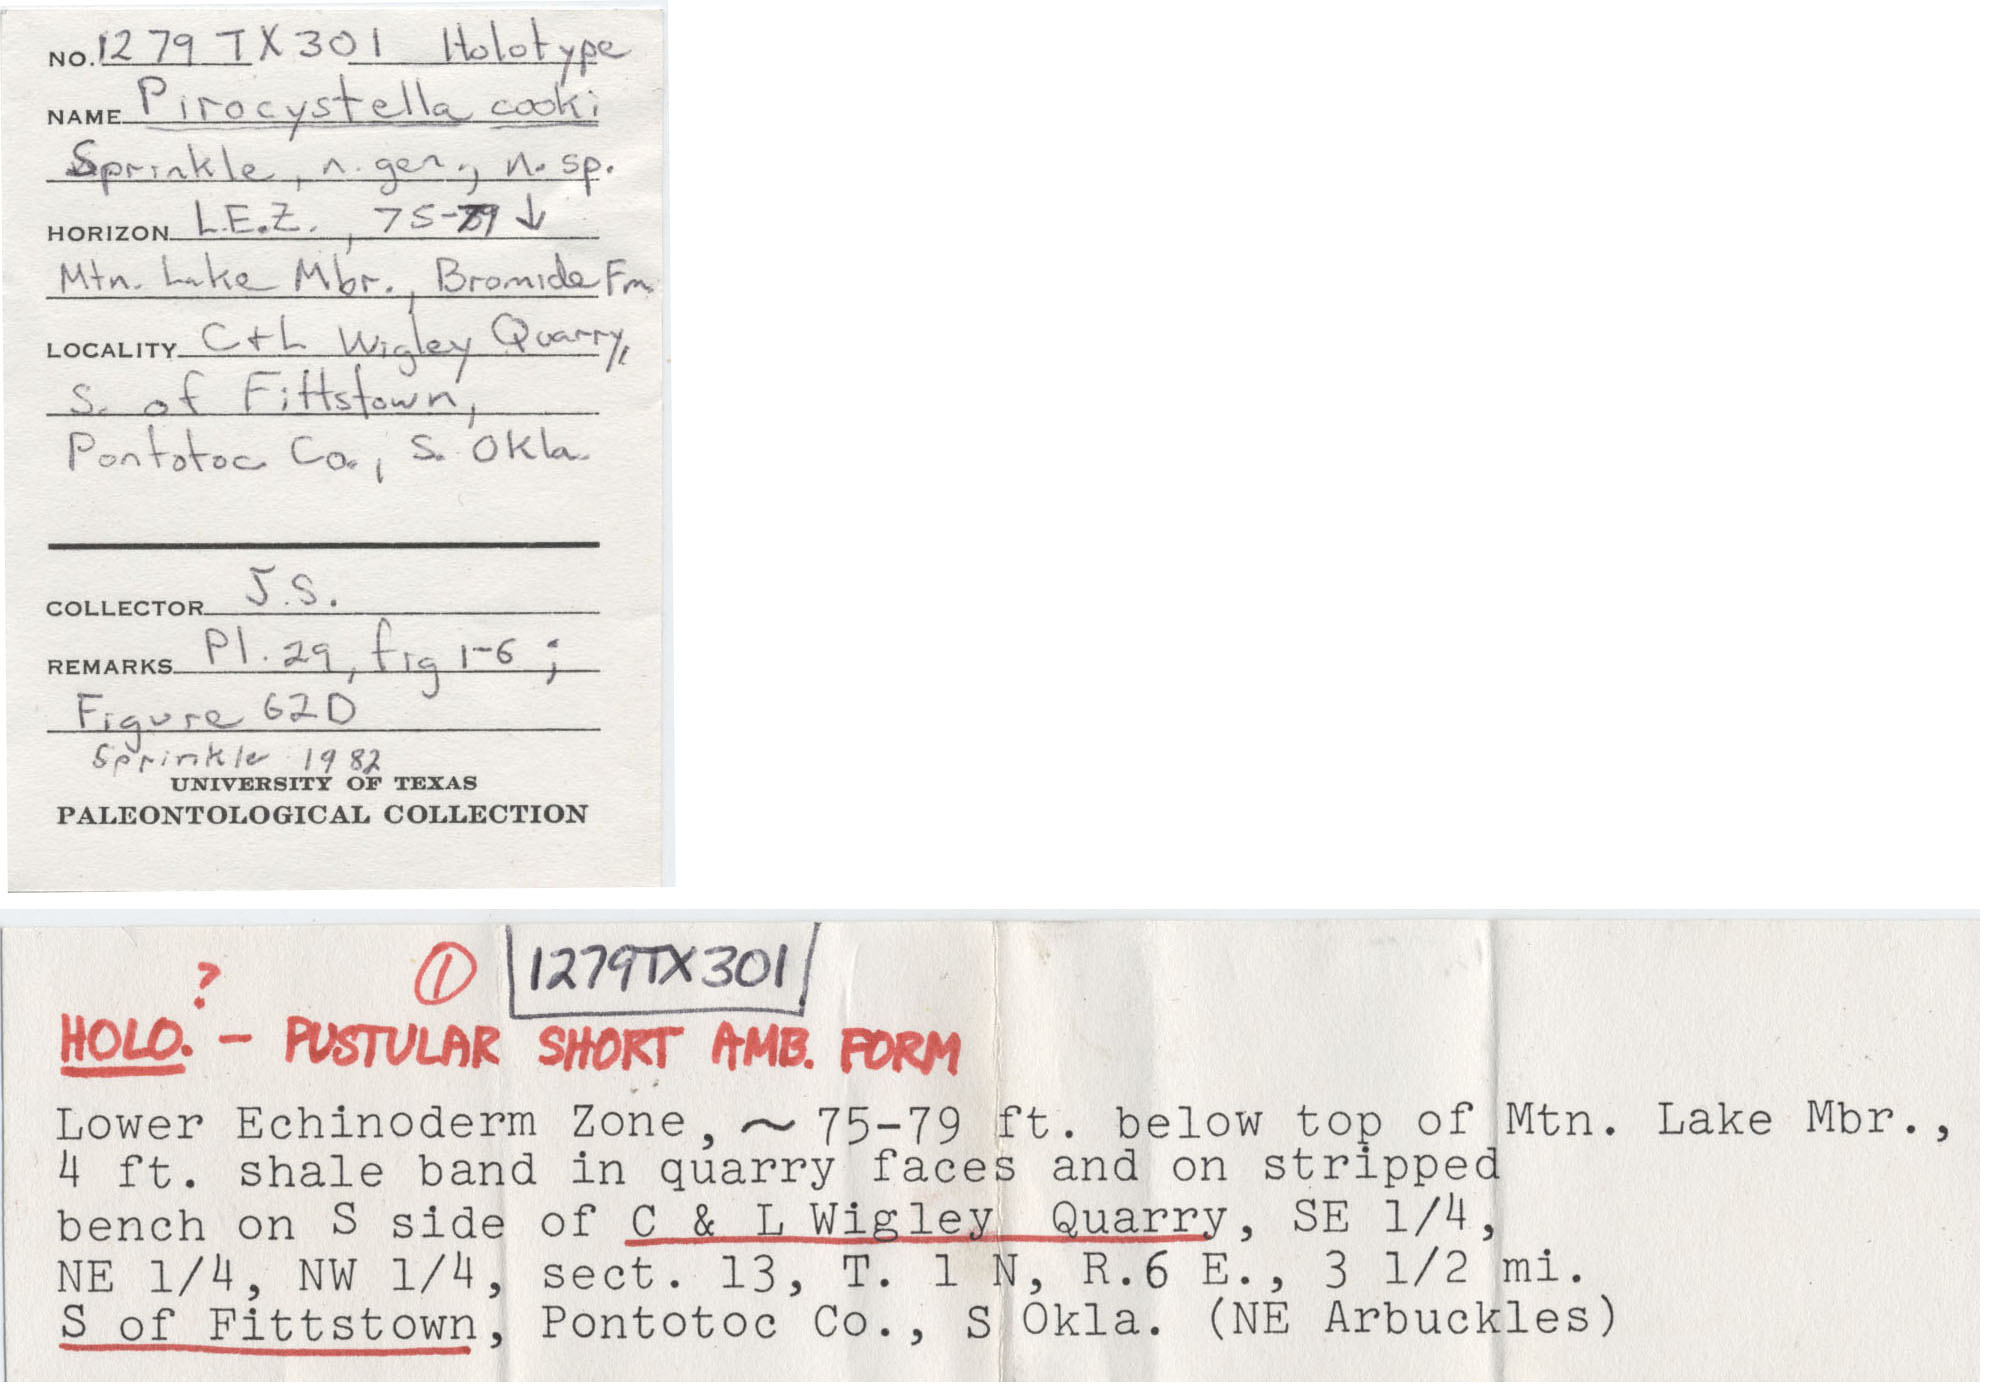 NO. 1279TX301 Holotype
NAME Pirocystella cooki
Sprinkle, n. gen., n. sp.
HORIZON L.E.Z., 75-79 ↓
Mtn. Lake Mbr., Bromide Fm.
LOCALITY C+L Wigley Quarry,
S. of Fittstown,
Pontotoc Co., S. Okla.
COLLECTOR J.S.
REMARKS Pl. 29, fig 1-6;
Figure 62D
Sprinkle 1982
UNIVERSITY OF TEXAS
PALEONTOLOGICAL COLLECTION
? 1 1279TX301
HOLO. - PUSTULAR SHORT AMB. FORM
Lower Echinoderm Zone, ~ 75-79 ft. below top of Mtn. Lake Mbr.,
4 ft. shale band in quarry faces and on stripped
bench on S side of C & L Wigley Quarry, SE 1/4,
NE 1/4, NW 1/4, sect. 13, T. 1 N, R.6 E., 3 1/2 mi.
S of Fittstown, Pontotoc Co., S Okla. (NE Arbuckles)